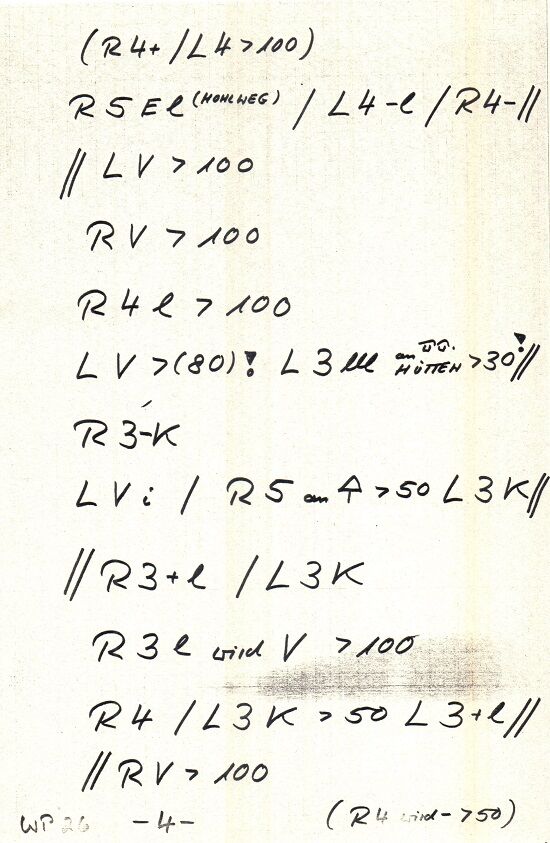 (R4+ / L4 > 100)
R5 El (HOHLWEG) / L4-l / R4- //
// LV > 100
RV > 100
R4 l > 100
LV > (80)! L3 lll an HÜTTEN > 30! //
R3-K
LVi / R5 an > 50 L3K //
// R3+l / L3K
R3 l wird V > 100
R4 / L3K > 50 L3+l //
// RV > 100
WP 26 -4- (R4 wird - > 50)